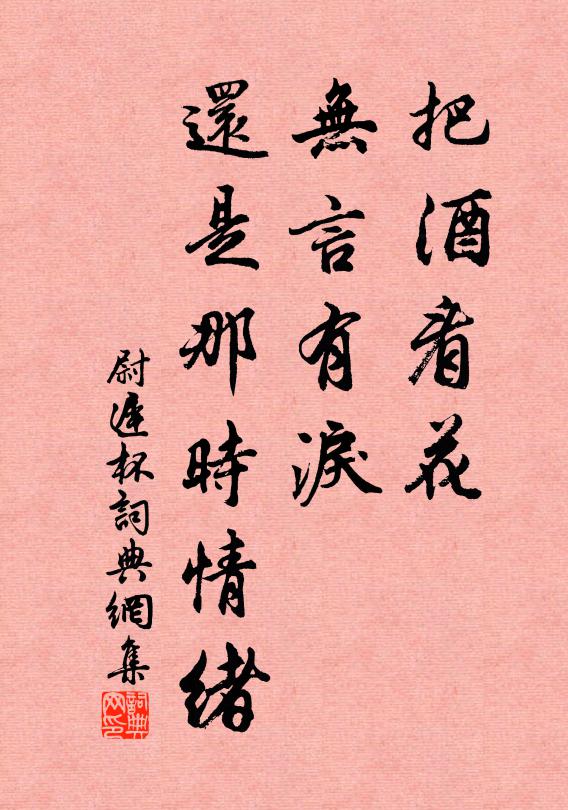 把酒看花
無言有淚
還是那時情緒
尉遲杯詞典網集
詞典网印